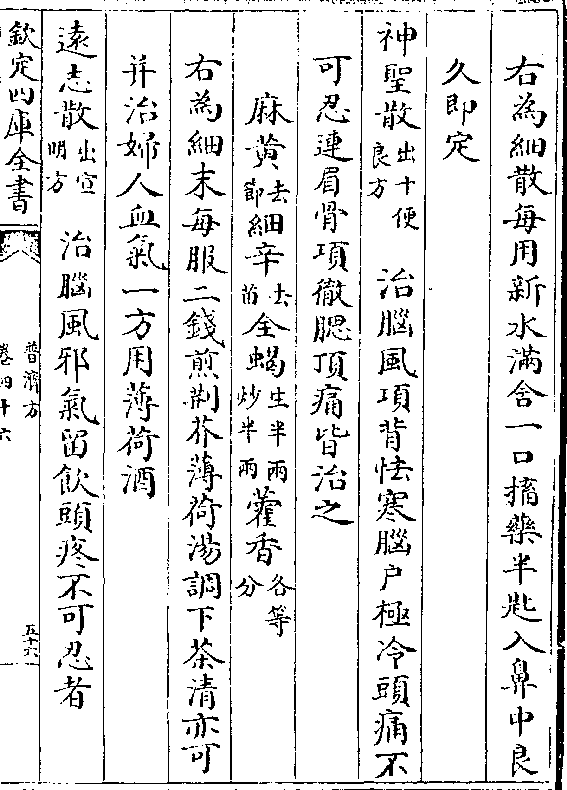 右為細散每用新水滿含一口摘藥半匙入鼻中良
久即定
神聖散出十便良方　治腦風項背怯寒腦户極冷頭痛不
可忍連眉骨項徹腮頂痛皆治之
麻黄去節細辛去苗全蝎生半兩炒半兩藿香各等分
右為細末每服二錢煎荆芥薄荷湯調下茶清亦可
并治婦人血氣一方用薄荷酒
遠志散出宣明方　治腦風邪氣留飲頭疼不可忍者
欽定四庫全書
普濟方
卷四十六
五十六